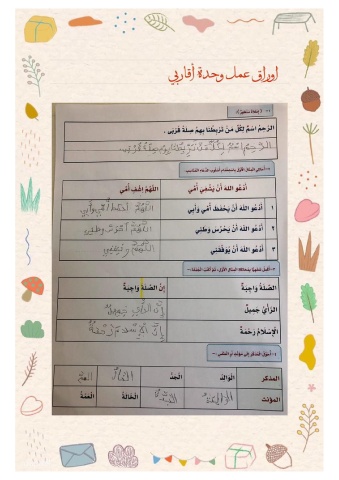 اوراق عمل وحدة أقاربي
الرَّحِمُ اسْمٌ لِكُلِّ مَنْ تَرْبِطُنَا بِهِمْ صِلَةُ قُرْبَى .
الرحم اسم لكل من تربطنا بهم صلة قربى.
أَدْعُو اللهَ أَنْ يَشْفِيَ أُمِّي اللَّهُمَّ اشْفِ أُمِّي
١ أَدْعُو اللهَ أَنْ يَحْفَظَ أُمِّي وَأَبِي اللهم احفظ أمي وأبي
٢ أَدْعُو اللهَ أَنْ يَحْرُسَ وَطَنِي اللهم احرس وطني
٣ أَدْعُو اللهَ أَنْ يُوَفِّقَنِي اللهم وفقني
الصِّلَةُ وَاجِبَةٌ إِنَّ الصِّلَةَ وَاجِبَةٌ
الرَّأْيُ جَمِيلٌ إن الرأي جميل
الإِسْلَامُ رَحْمَةٌ إن الإسلام رحمة
المذكر الْوَالِدُ الْجَدُّ الخال العم
المؤنث الوالدة الجدة الْخَالَةُ الْعَمَّةُ